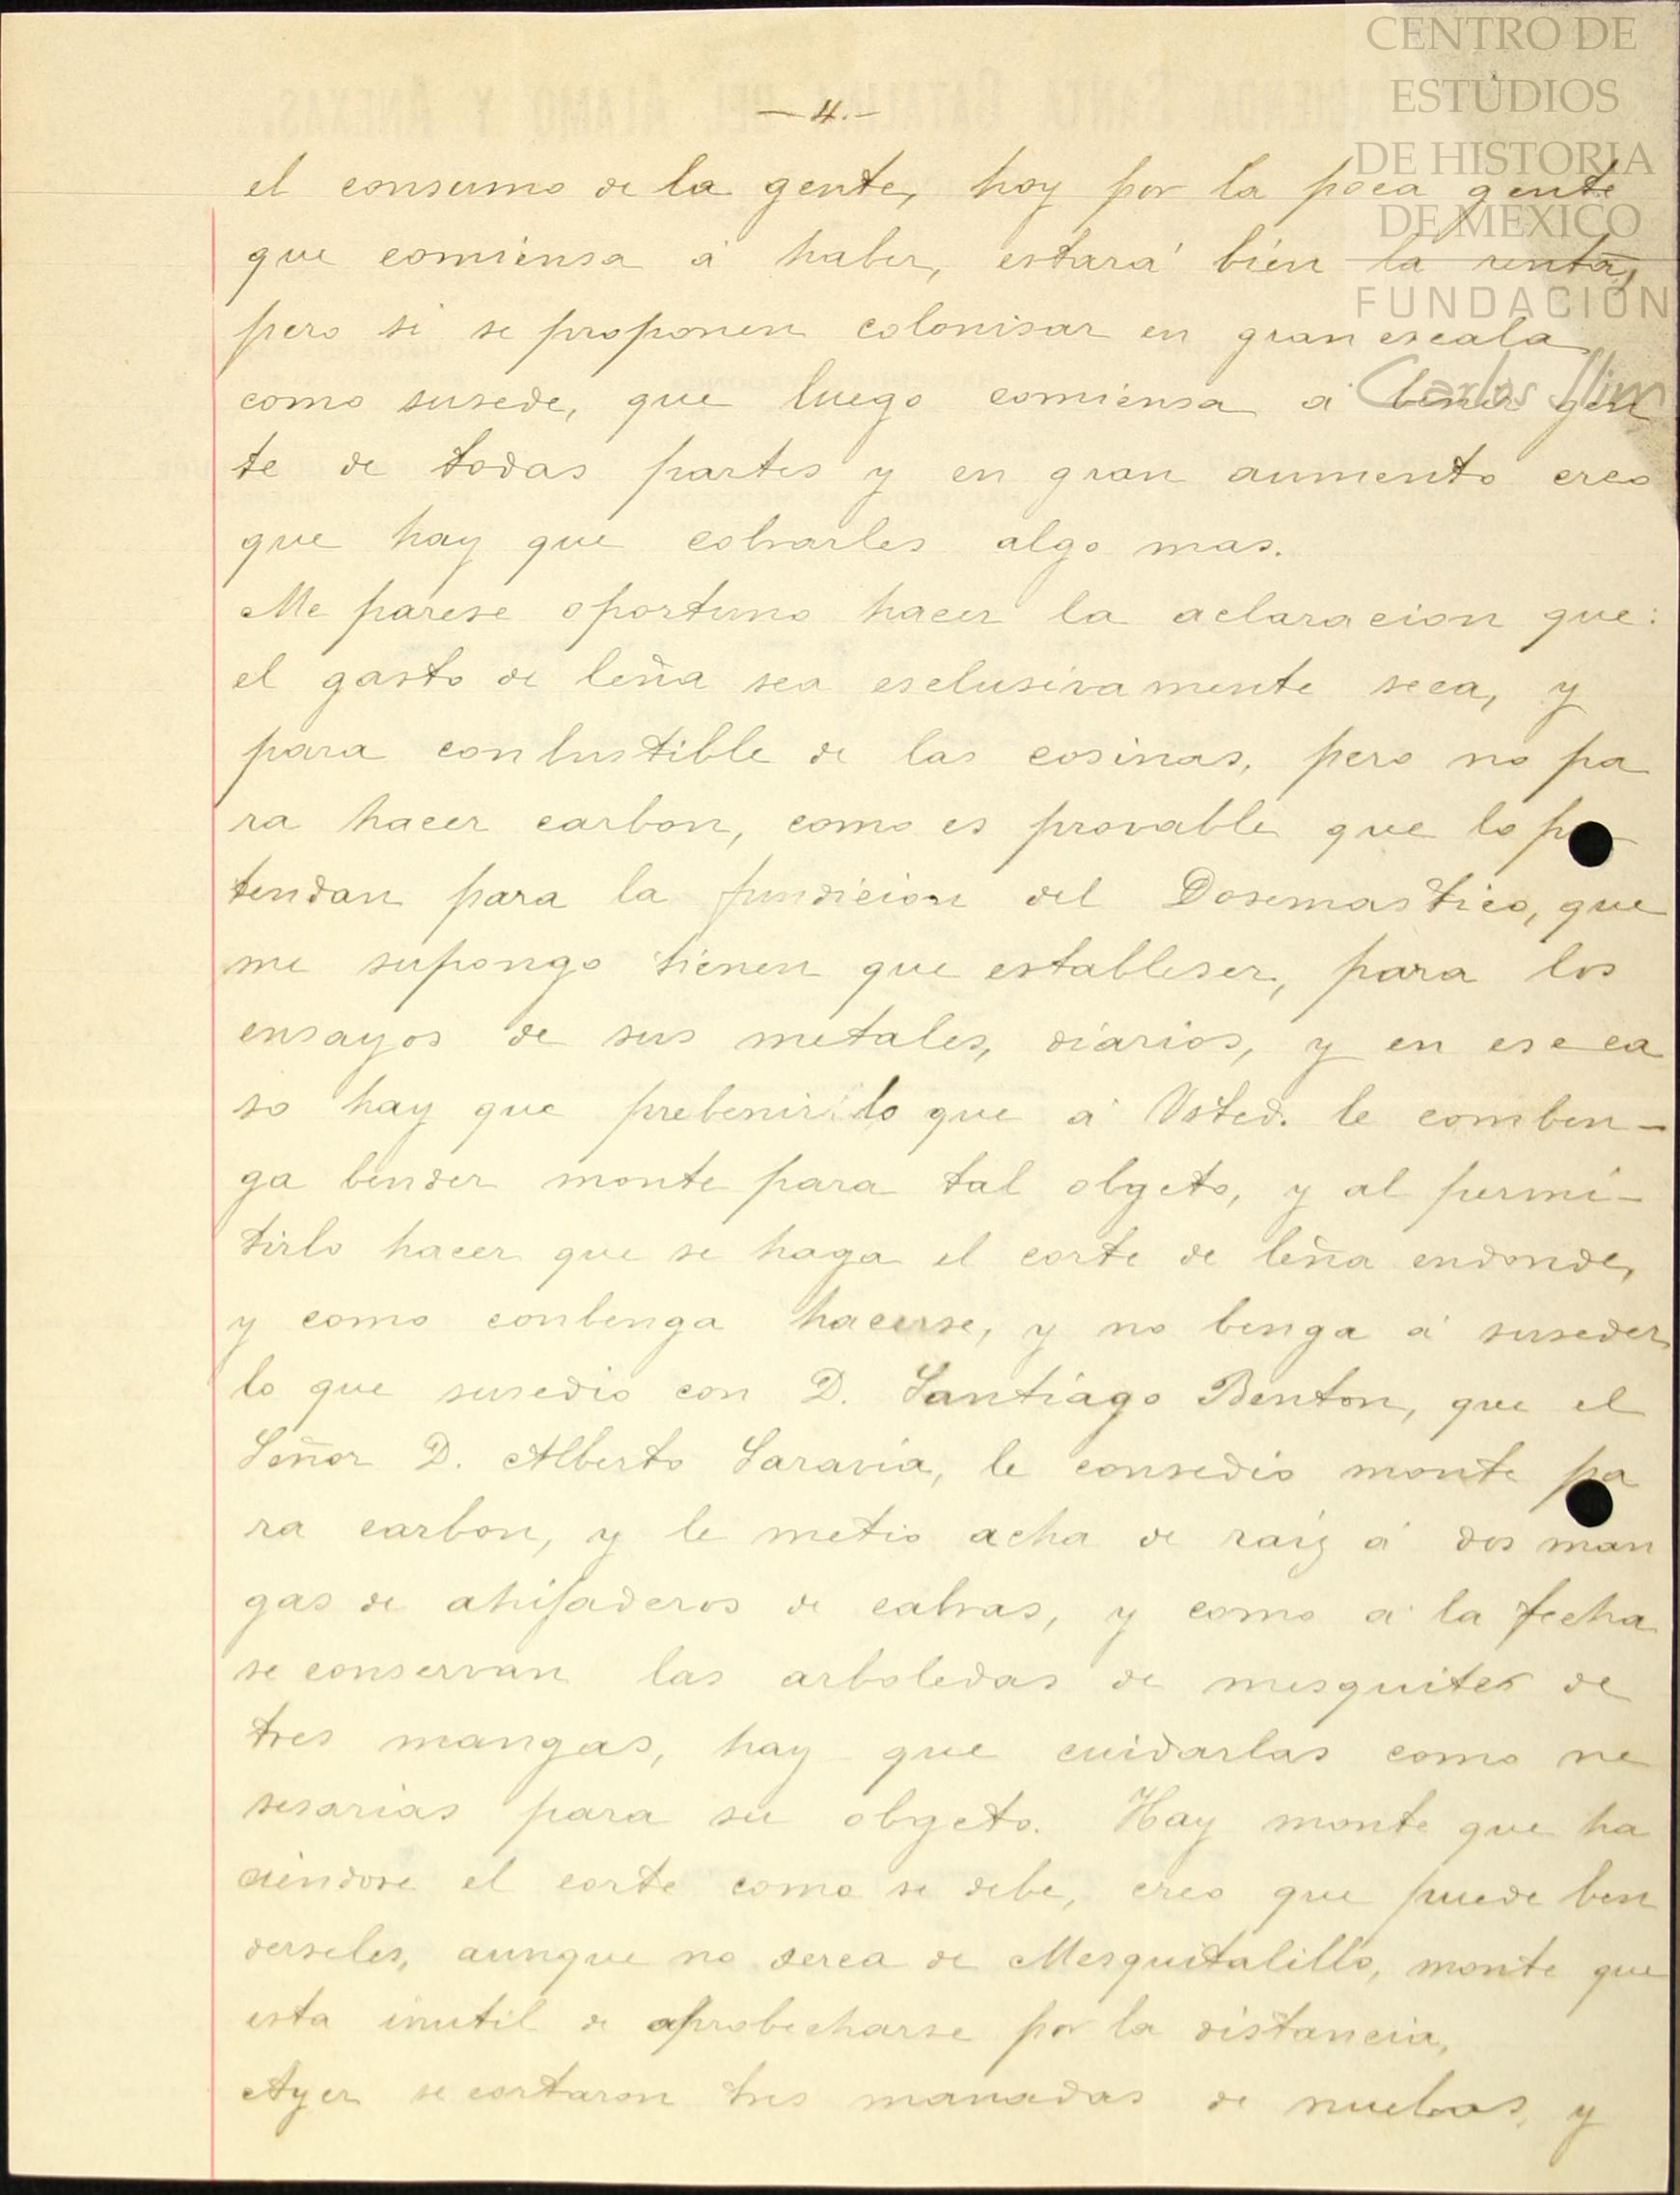 CENTRO DE
ESTUDIOS
DE HISTORIA
DE MEXICO
FUNDACIÓN
Carlos Slim
HACIENDA SANTA CATALINA DEL ALAMO Y ANEXAS.
— 4. —
el consumo de la gente, hoy por la poca gente
que comiensa á haber, estará bien la renta,
pero si se proponen colonisar en gran escala
como susede, que luego comiensa á benir gen
te de todas partes y en gran aumento creo
que hay que cobrarles algo mas.
Me parese oportuno hacer la aclaracion que:
el gasto de leña sea esclusivamente seca, y
para conbustible de las cosinas, pero no pa
ra hacer carbon, como es provable que lo pre
tendan para la fundicion del Dosemastico, que
me supongo tienen que estableser, para los
ensayos de sus metales, diarios, y en ese ca
so hay que prebenir lo que á Usted. le comben-
ga bender monte para tal obgeto, y al permi-
tirlo hacer que se haga el corte de leña endonde,
y como conbenga hacerse, y no benga á suseder
lo que susedio con D. Santiago Benton, que el
Señor D. Alberto Saravia, le consedio monte pa
ra carbon, y le metio acha de raiz á dos man
gas de ahijaderos de cabras, y como á la fecha
se conservan las arboledas de mesquites de
tres mangas, hay que cuidarlas como ne
sesarias para su obgeto. Hay monte que ha
ciendose el corte como se debe, creo que puede ben
derseles, aunque no serca de Mesquitalillo, monte que
esta inutil de aprobecharse por la distancia,
Ayer se cortaron tres manadas de nuebas, y